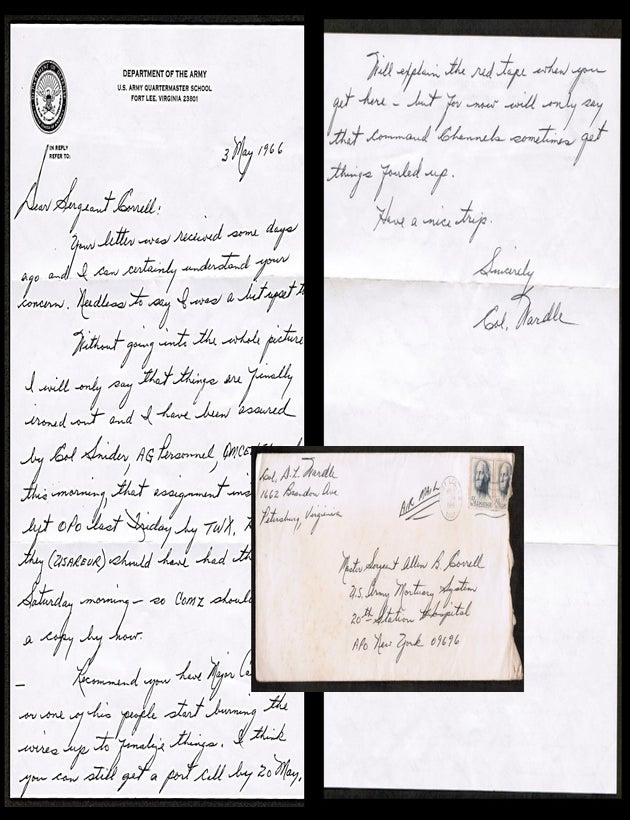 DEPARTMENT OF THE ARMY
U.S. ARMY QUARTERMASTER SCHOOL
FORT LEE, VIRGINIA 23801
IN REPLY
REFER TO:
3 May 1966
Dear Sergeant Correll:
Your letter was received some days
ago and I can certainly understand your
concern. Needless to say I was a bit upset to
Without going into the whole picture
I will only say that things are finally
ironed out and I have been assured
by Col Snider, AG Personnel,
this morning, that assignment ins
left OPO last Friday by TWX.
they (USAREUR) should have had th
Saturday morning - so COMZ should
a copy by now.
Recommend you have Major
or one of his people start burning the
wires up to finalize things. I think
you can still get a port call by 20 May.
Will explain the red tape when you
get here - but for now will only say
that command channels sometimes get
things fouled up.
Have a nice trip.
Sincerely
Col. Wardle
Col. D.L. Wardle
1662 Brandon Ave
Petersburg, Virginia
AIR MAIL
Master Sergeant Allen B. Correll
U.S. Army Mortuary System
20th Station Hospital
APO New York 09696